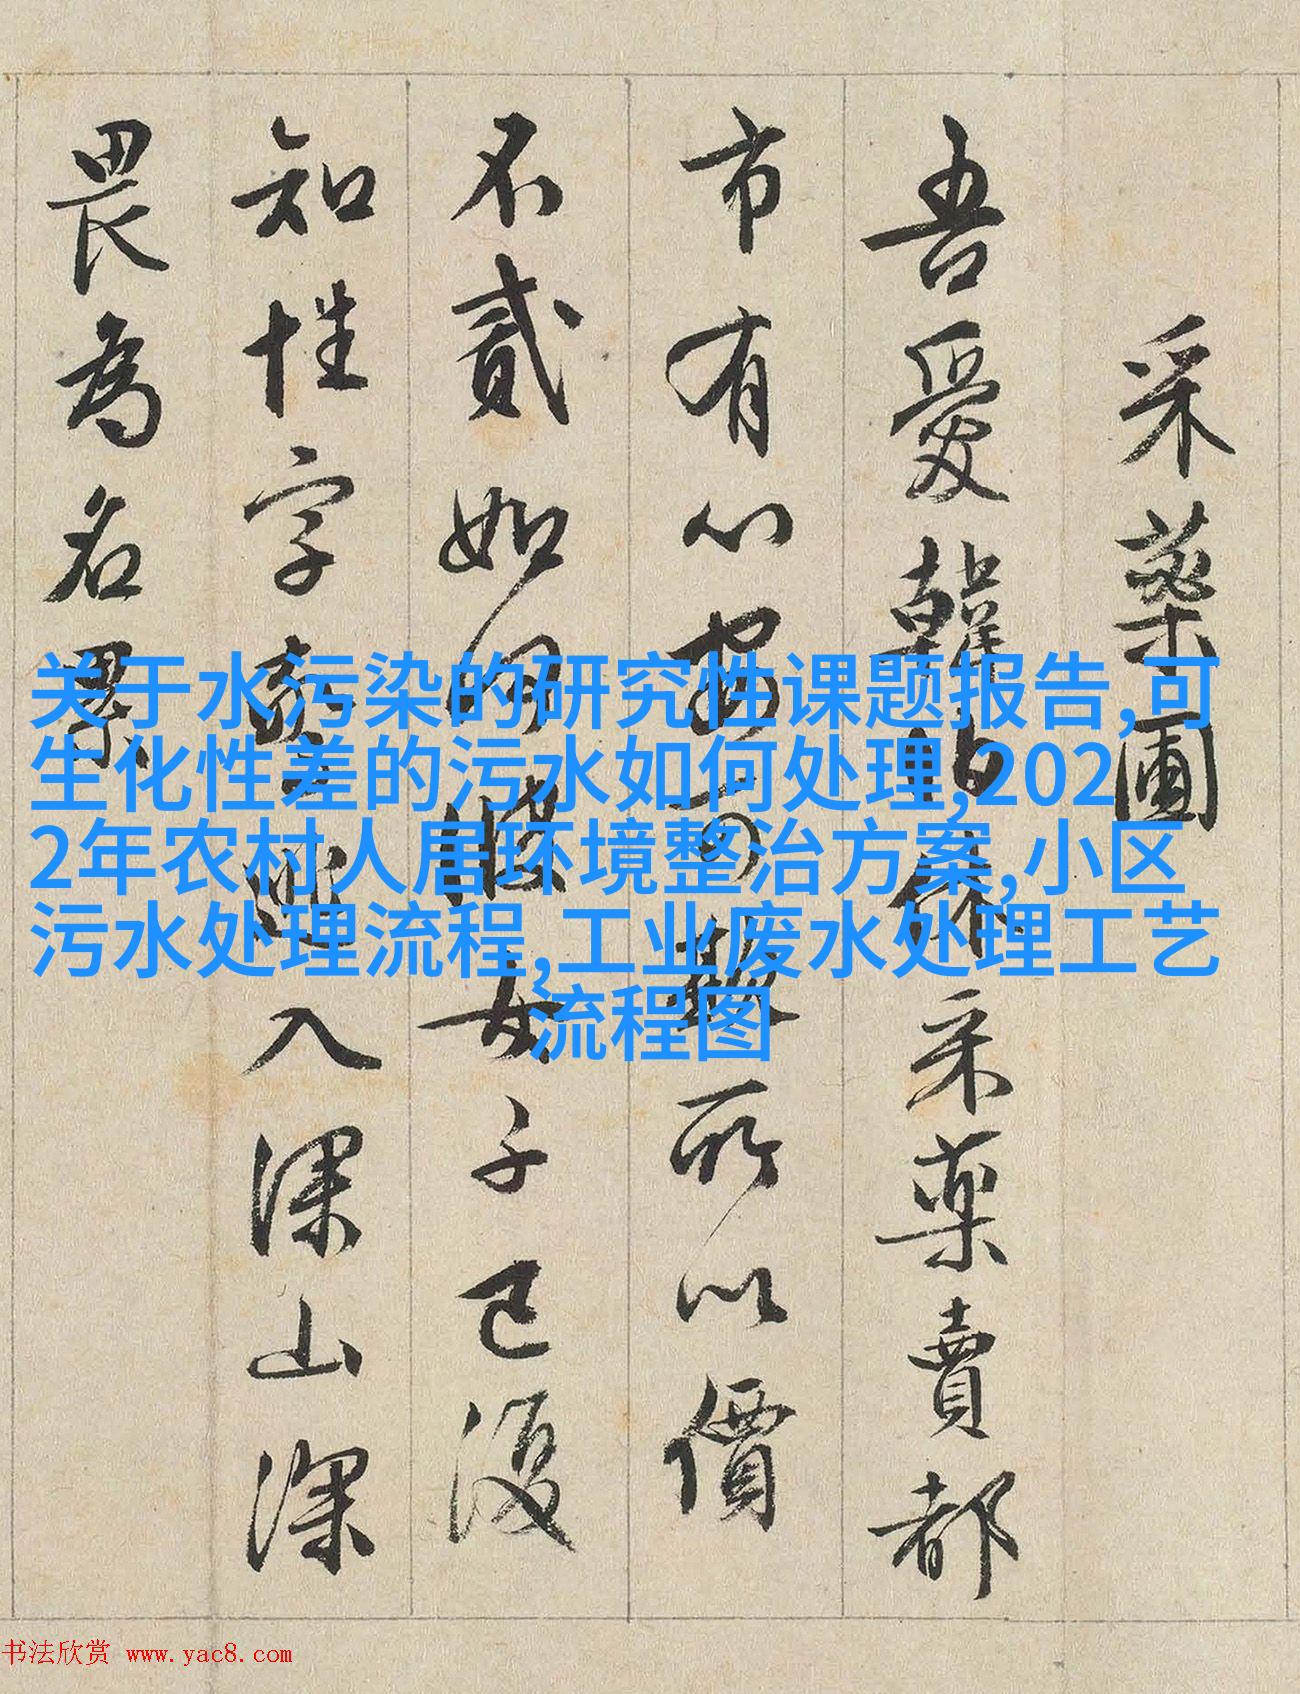 采藥圃
吾愛韓伯休采藥賣都
市有心安可欺所以價
不貳如何女子已復
知性字驚逃入深山深
畏為名累
关于水污染的研究性课题报告,可
生化性差的污水如何处理,202
2年农村人居环境整治方案,小区
污水处理流程,工业废水处理工艺
流程图
书法欣赏 www.yac8.com